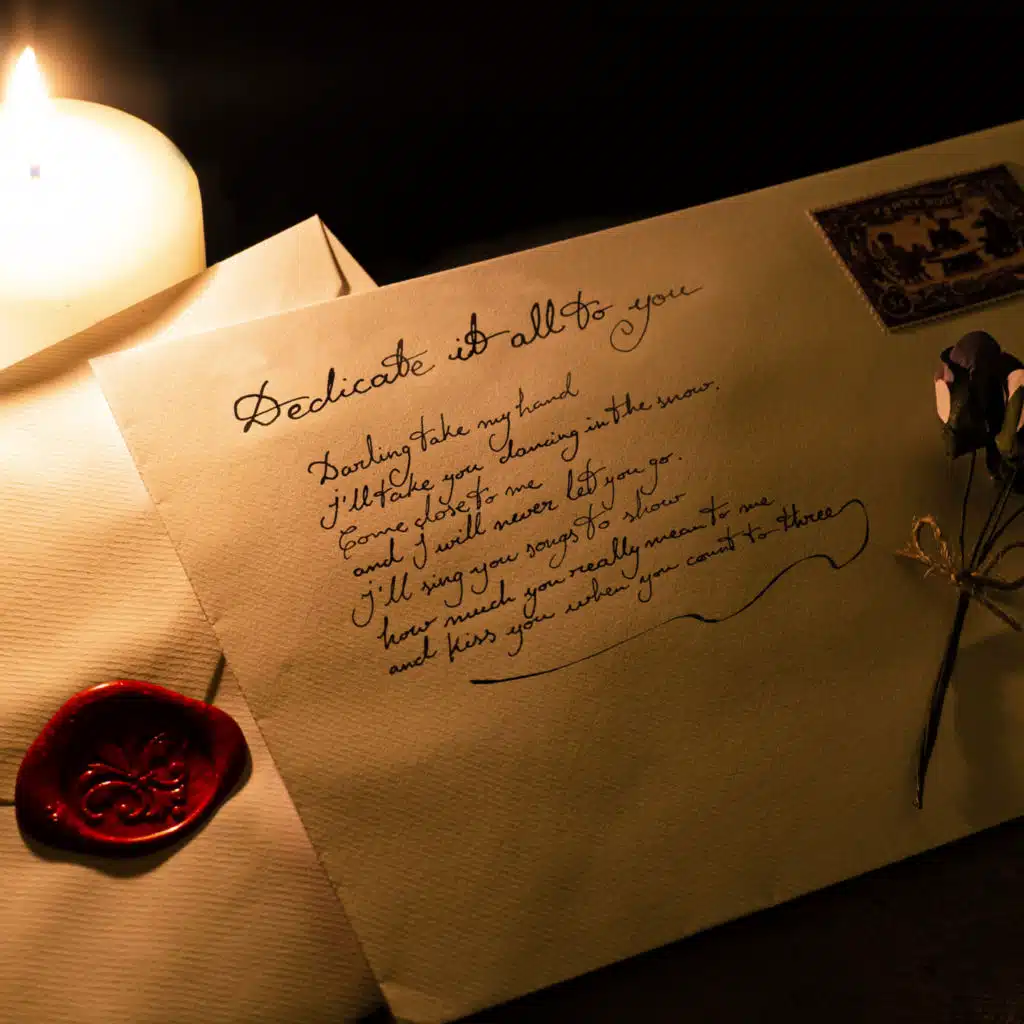 Dedicate it all to you
Darling take my hand
I'll take you dancing in the snow.
Come close to me
and I will never let you go.
I'll sing you songs to show
how much you really mean to me
and kiss you when you count to three